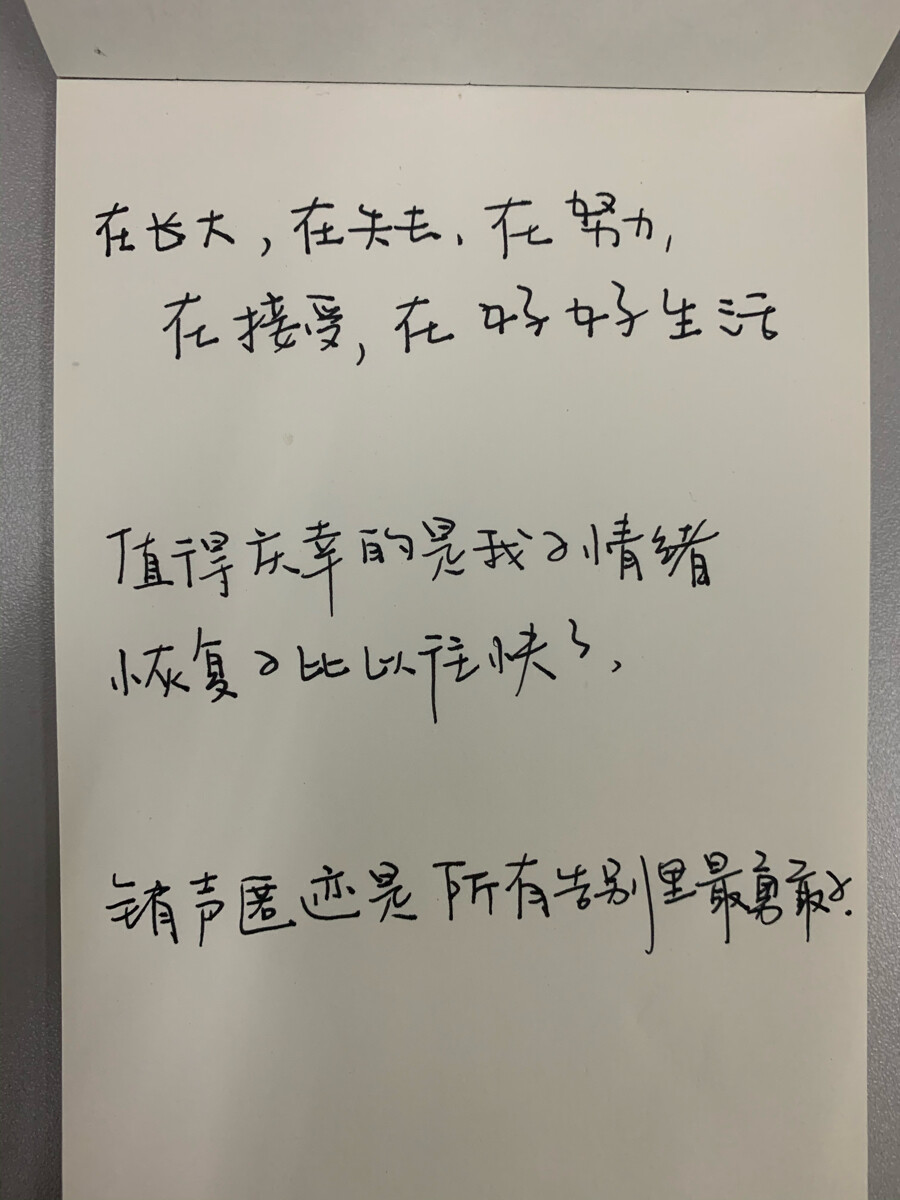 在长大，在失去、在努力，
在接受，在好好生活
值得庆幸的是我的情绪
恢复的比以往快了，
销声匿迹是所有告别里最勇敢的.